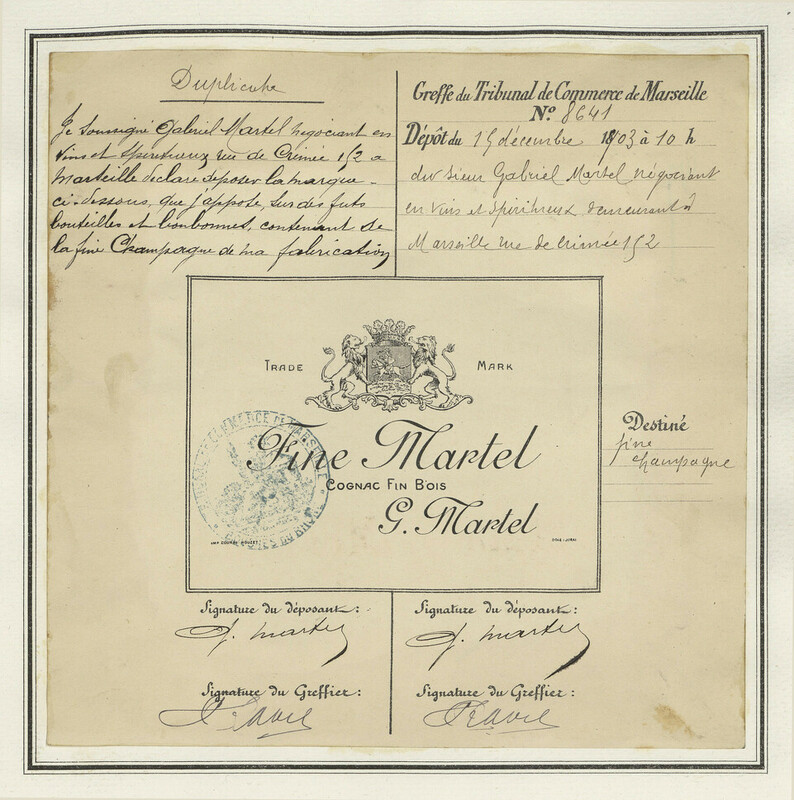 Duplicata
Je soussigné Gabriel Martel négociant en
vins et spiritueux rue de Crimée 152 a
Marseille déclare déposer la marque
ci-dessous, que j'appose, sur des futs
bouteilles et bonbonnes, contenant de
la fine Champagne de ma fabrication
Greffe du Tribunal de Commerce de Marseille
No. 8641
Dépôt du 15 décembre 1903 à 10 h
du sieur Gabriel Martel négociant
en vins et spiritueux demeurant à
Marseille rue de Crimée 152
TRADE MARK
Fine Martel
COGNAC FIN BOIS
G. Martel
Destiné
fine
champagne
Signature du déposant:
G. Martel
Signature du déposant:
G. Martel
Signature du Greffier:
Signature du Greffier: